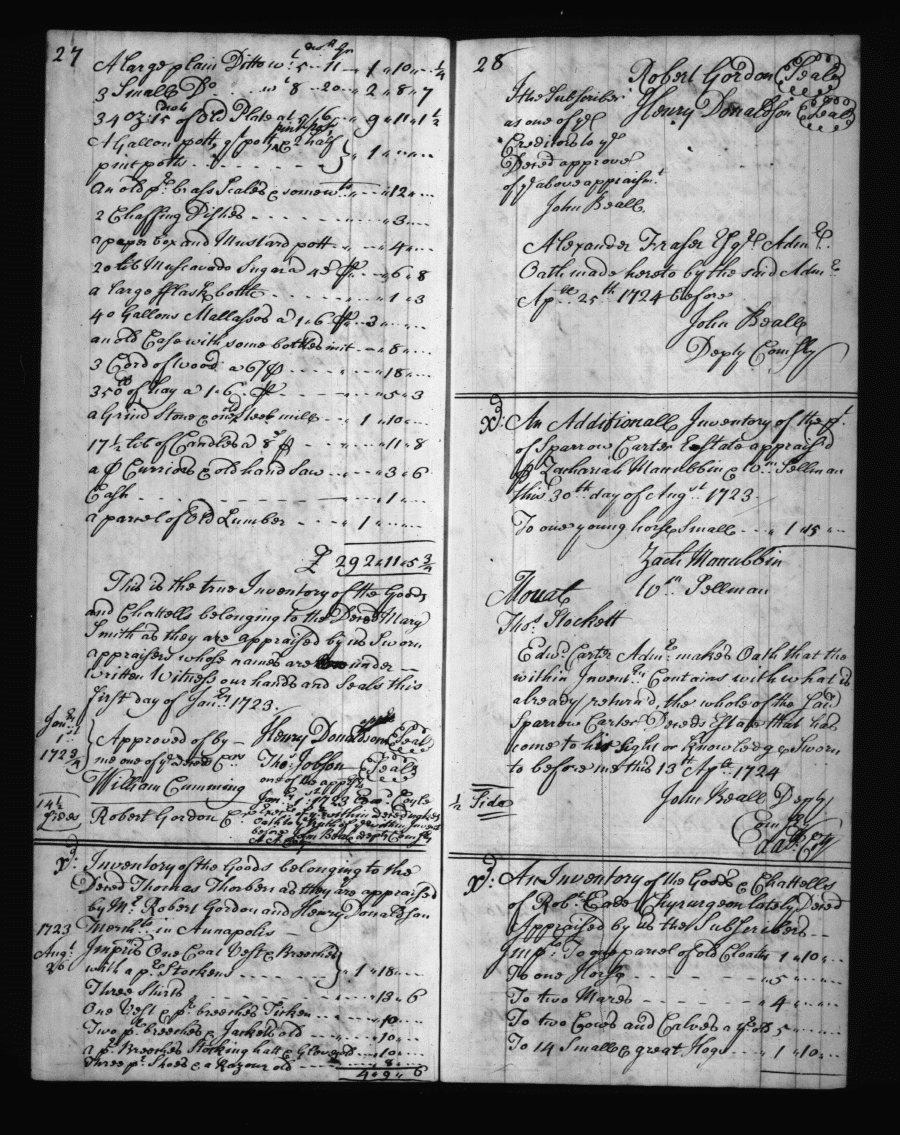 27
A large plain Ditto wt 5 11 1 10 ¼
3 Small Do wt 8 20 2 8 7
34 oz: 15 of Old Plate at 5/6 9 11 1½
A Gallon pott, qt pott, pint pott, & 2 half
pint potts 1
An old pr brass Scales & some wts 12
2 Chaffing Dishes 3
a paper box and Mustard pott 4
20 lib Muscavado Sugar a 4d 6 8
a large fflask bottle 1 3
40 Gallons Mallasses a 1 6 3
an old Case with some bottles in it 8
3 Cord of wood a 6/ 18
350 of hay a 1 6 5 3
a Grind Stone & one Steel mill 1 10
17½ lib of Candles a 8d 11 8
a Curriers & old hand Saw 3 6
Cash 1
a parcel of Old Lumber 1
£ 292 11 5¾
This is the true Inventory of the Goods
and Chattells belonging to the Deced Mary
Smith as they are appraised by us Sworn
appraisers whose names are under
written Witness our hands and Seals this
first day of Janry 1723.
Janry 1st 1723/4
Approved of by
me one of ye Deced
William Cumming
Henry Donaldson Seal
Thos Jobson Seal
one of the
Robert Gordon
14½
Sides
Janry 1st 1723
before John Beale Deply Comsry
Xd: Inventory of the Goods belonging to the
Deced Thomas Thorben as they are appraised
by Mr Robert Gordon and Henry Donaldson
1723 Merchts in Annapolis
Augt 26 Impris One Coat Vest & Breeches
with a pr Stockens 1 18
Three Shirts 13 6
One Vest & pr breeches Ticken 10
Two pr breeches & Jackett old 10
a pr Breeches Stocking hatt & Gloves 10
three pr Shoes & a Razour old 8
4 9 6
28
Robert Gordon Seal
Henry Donaldson Seal
I the Subscriber
as one of ye
Creditors to ye
Deced approve
of ye above appraismt
John Beall
Alexander Fraser Esqr Admr
Oath made hereto by the said Admr
Aple 25th 1724 before
John Beall
Deply Comsry
Xd: An Additionall Inventory of the
of Sparrow Carter Estate appraised
Zachariah Maccubbin & Wm Sellman
this 30th day of Augst 1723
To one young horse Small 1 15
Zach Maccubbin
Wm Sellman
Thos Stockett
Edwd Carter Admr makes Oath that the
within Inventry Contains with what is
already return'd, the whole of the said
Sparrow Carter Deceds Estate that has
come to his sight or knowledge Sworn
to before me this 13th Aple 1724
John Beall Deply
Comsry
½ Side
Xd: An Inventory of the Goods & Chattells
of Robt Chyrurgeon lately Deced
Appraised by us the Subscribers
Imps To one parcel of Old Cloaths 1 10
To one Horse 5
To two Mares 4
To two Cows and Calves 5
To 14 Small & great Hogs 1 10